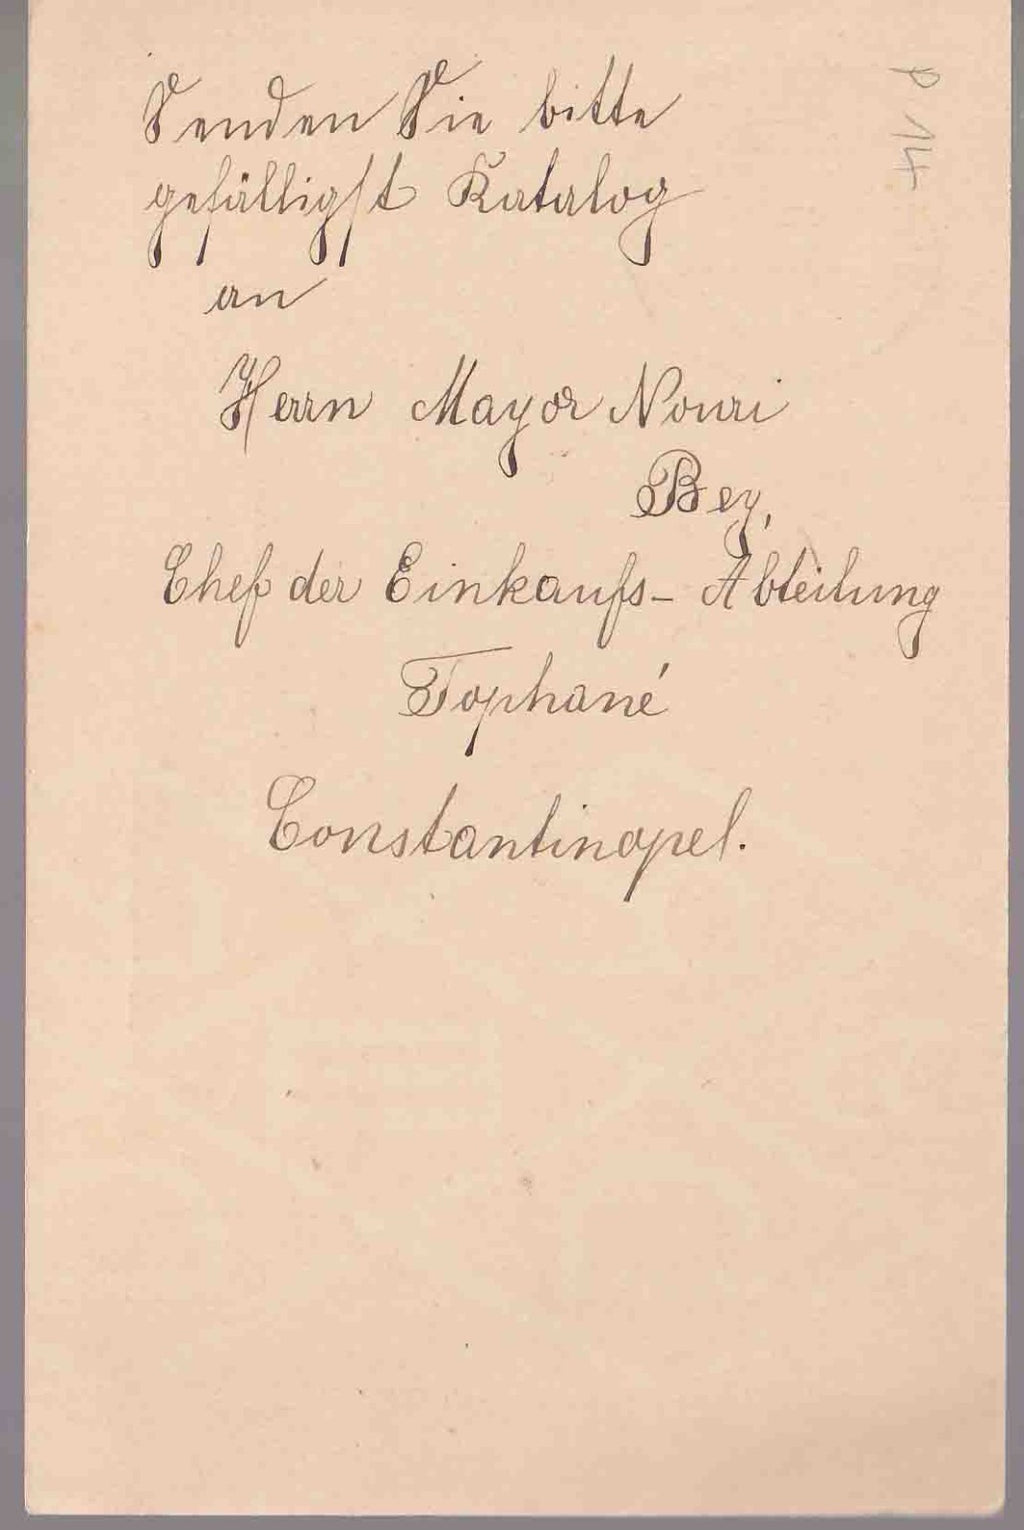 Senden Sie bitte
gefälligst Katalog
an
Herrn Mayor Nouri
Bey,
Chef der Einkaufs- Abteilung
Tophané
Constantinopel.
P 14